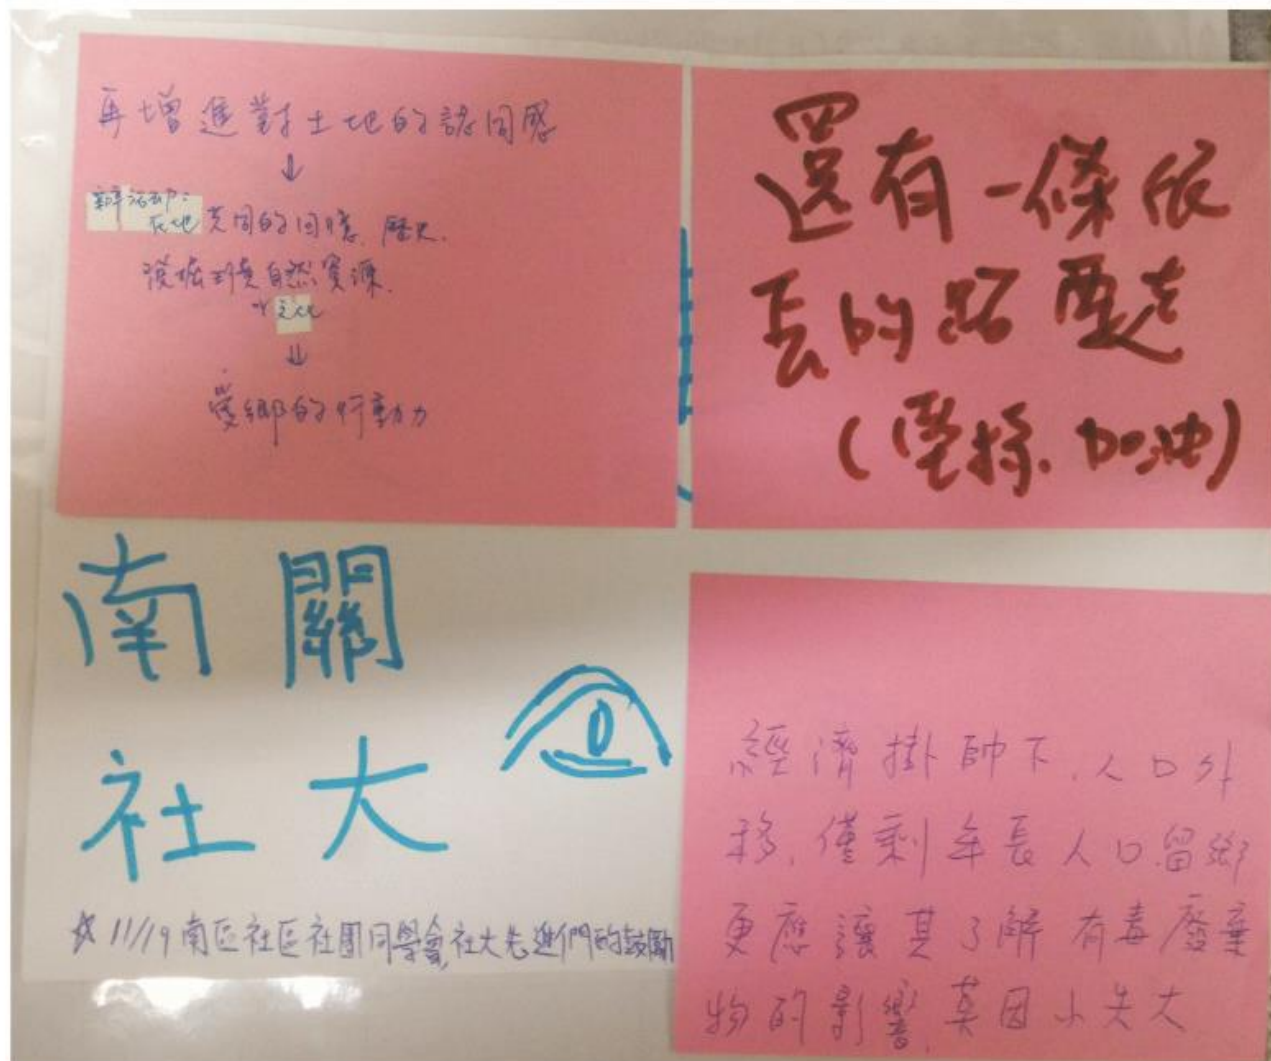 再增進對土地的認同感
↓
辦活動:
在地共同的回憶、歷史、
挖掘珍貴自然資源、
文化
↓
愛鄉的行動力
還有一條很
長的路要走
(堅持、加油)
南關
社大
☆11/19南區社區社團同學會,社大先進們的鼓勵
經濟掛帥下,人口外
移,僅剩年長人口留鄉
更應讓其了解有毒廢棄
物的影響,莫因小失大